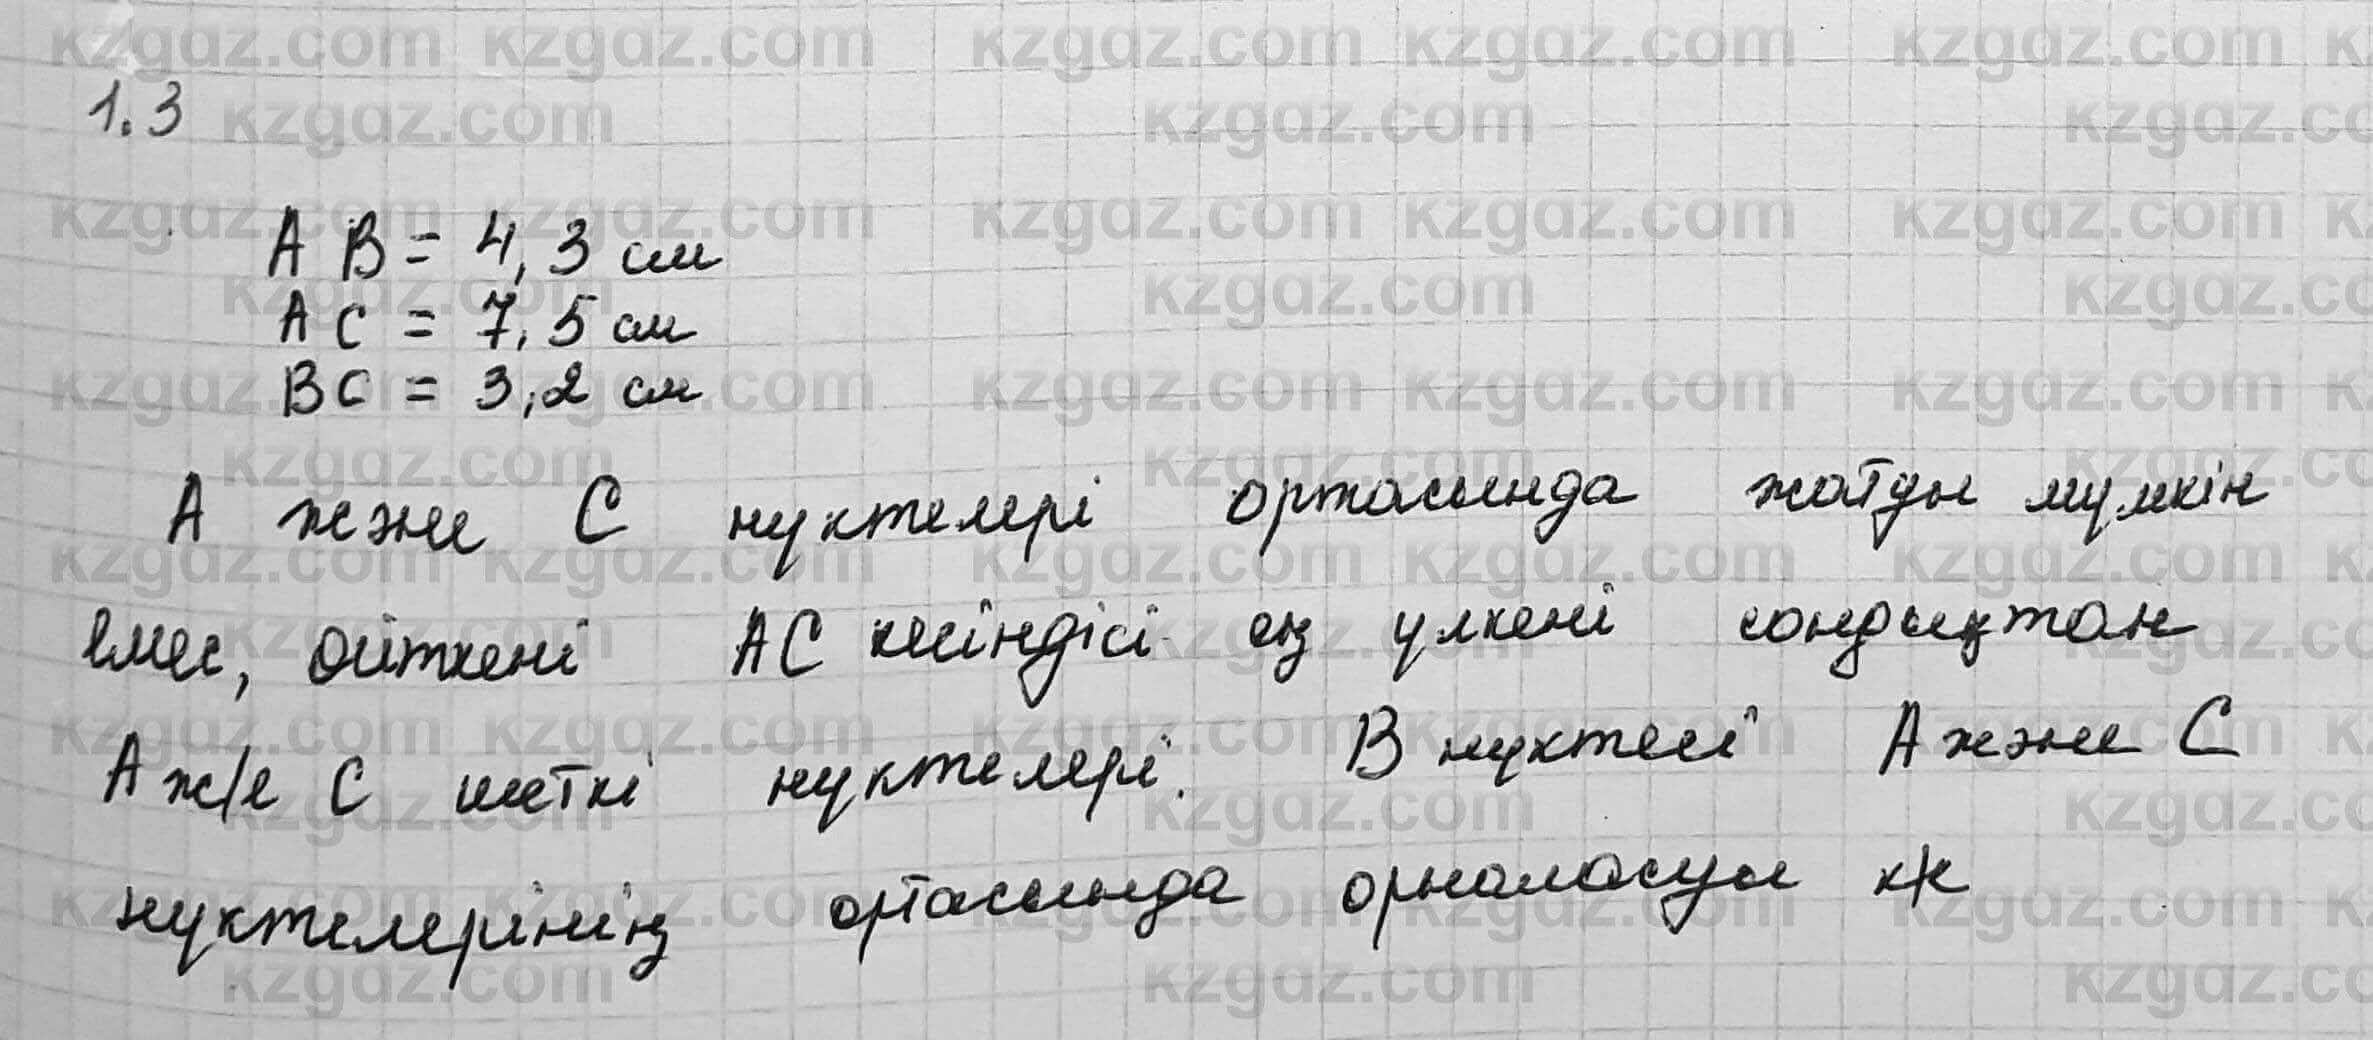 1.3
AB = 4,3 см
AC = 7,5 см
BC = 3,2 см
А және С нүктелері ортасында жатуы мүмкін
емес, өйткені АС кесіндісі ең үлкені сондықтан
А ж/е С шеткі нүктелері. В нүктесі А және С
нүктелерінің ортасында орналасуы к/к
kzgaz.com